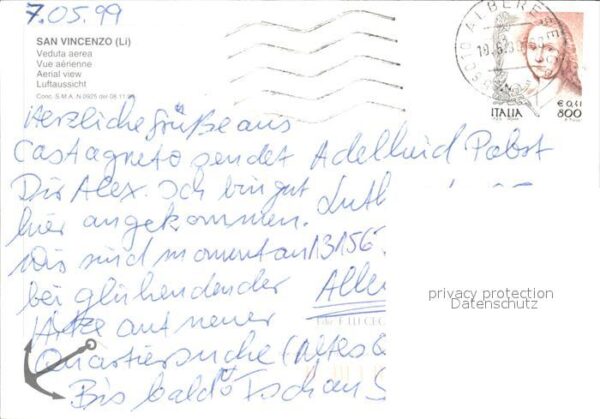 7.05.99
SAN VINCENZO (LI)
Veduta aerea
Vue aérienne
Aerial view
Luftaussicht
Conc. S.M.A. N 0925 del 08.11.
ITALIA
€ 0,41
800
Herzliche Grüße aus
Castagneto sendet Adelheid Pabst
Dir Alex. Ich bin gut
hier angekommen.
Wir sind momentan 13156
bei glühendender
Hitze auf neuer
Quartiersuche (altes
Bis bald Tschau
privacy protection
Datenschutz